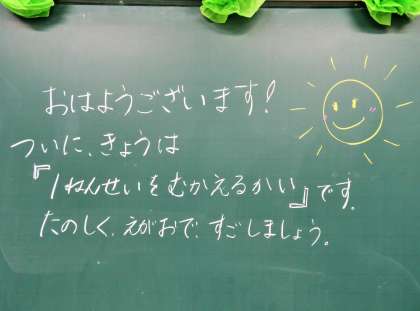 おはようございます!
ついに、きょうは
『1ねんせいをむかえるかい』です。
たのしく、えがおで、すごしましょう。